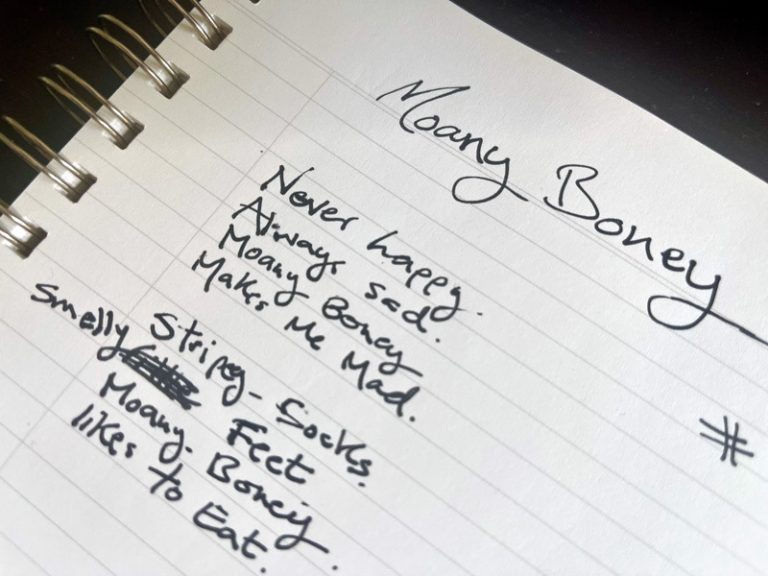 Moany Boney
Never happy.
Always sad.
Moany Boney
Makes Me Mad.
#
Stripey - Socks.
Smelly Feet
Moany. Boney.
likes to Eat.